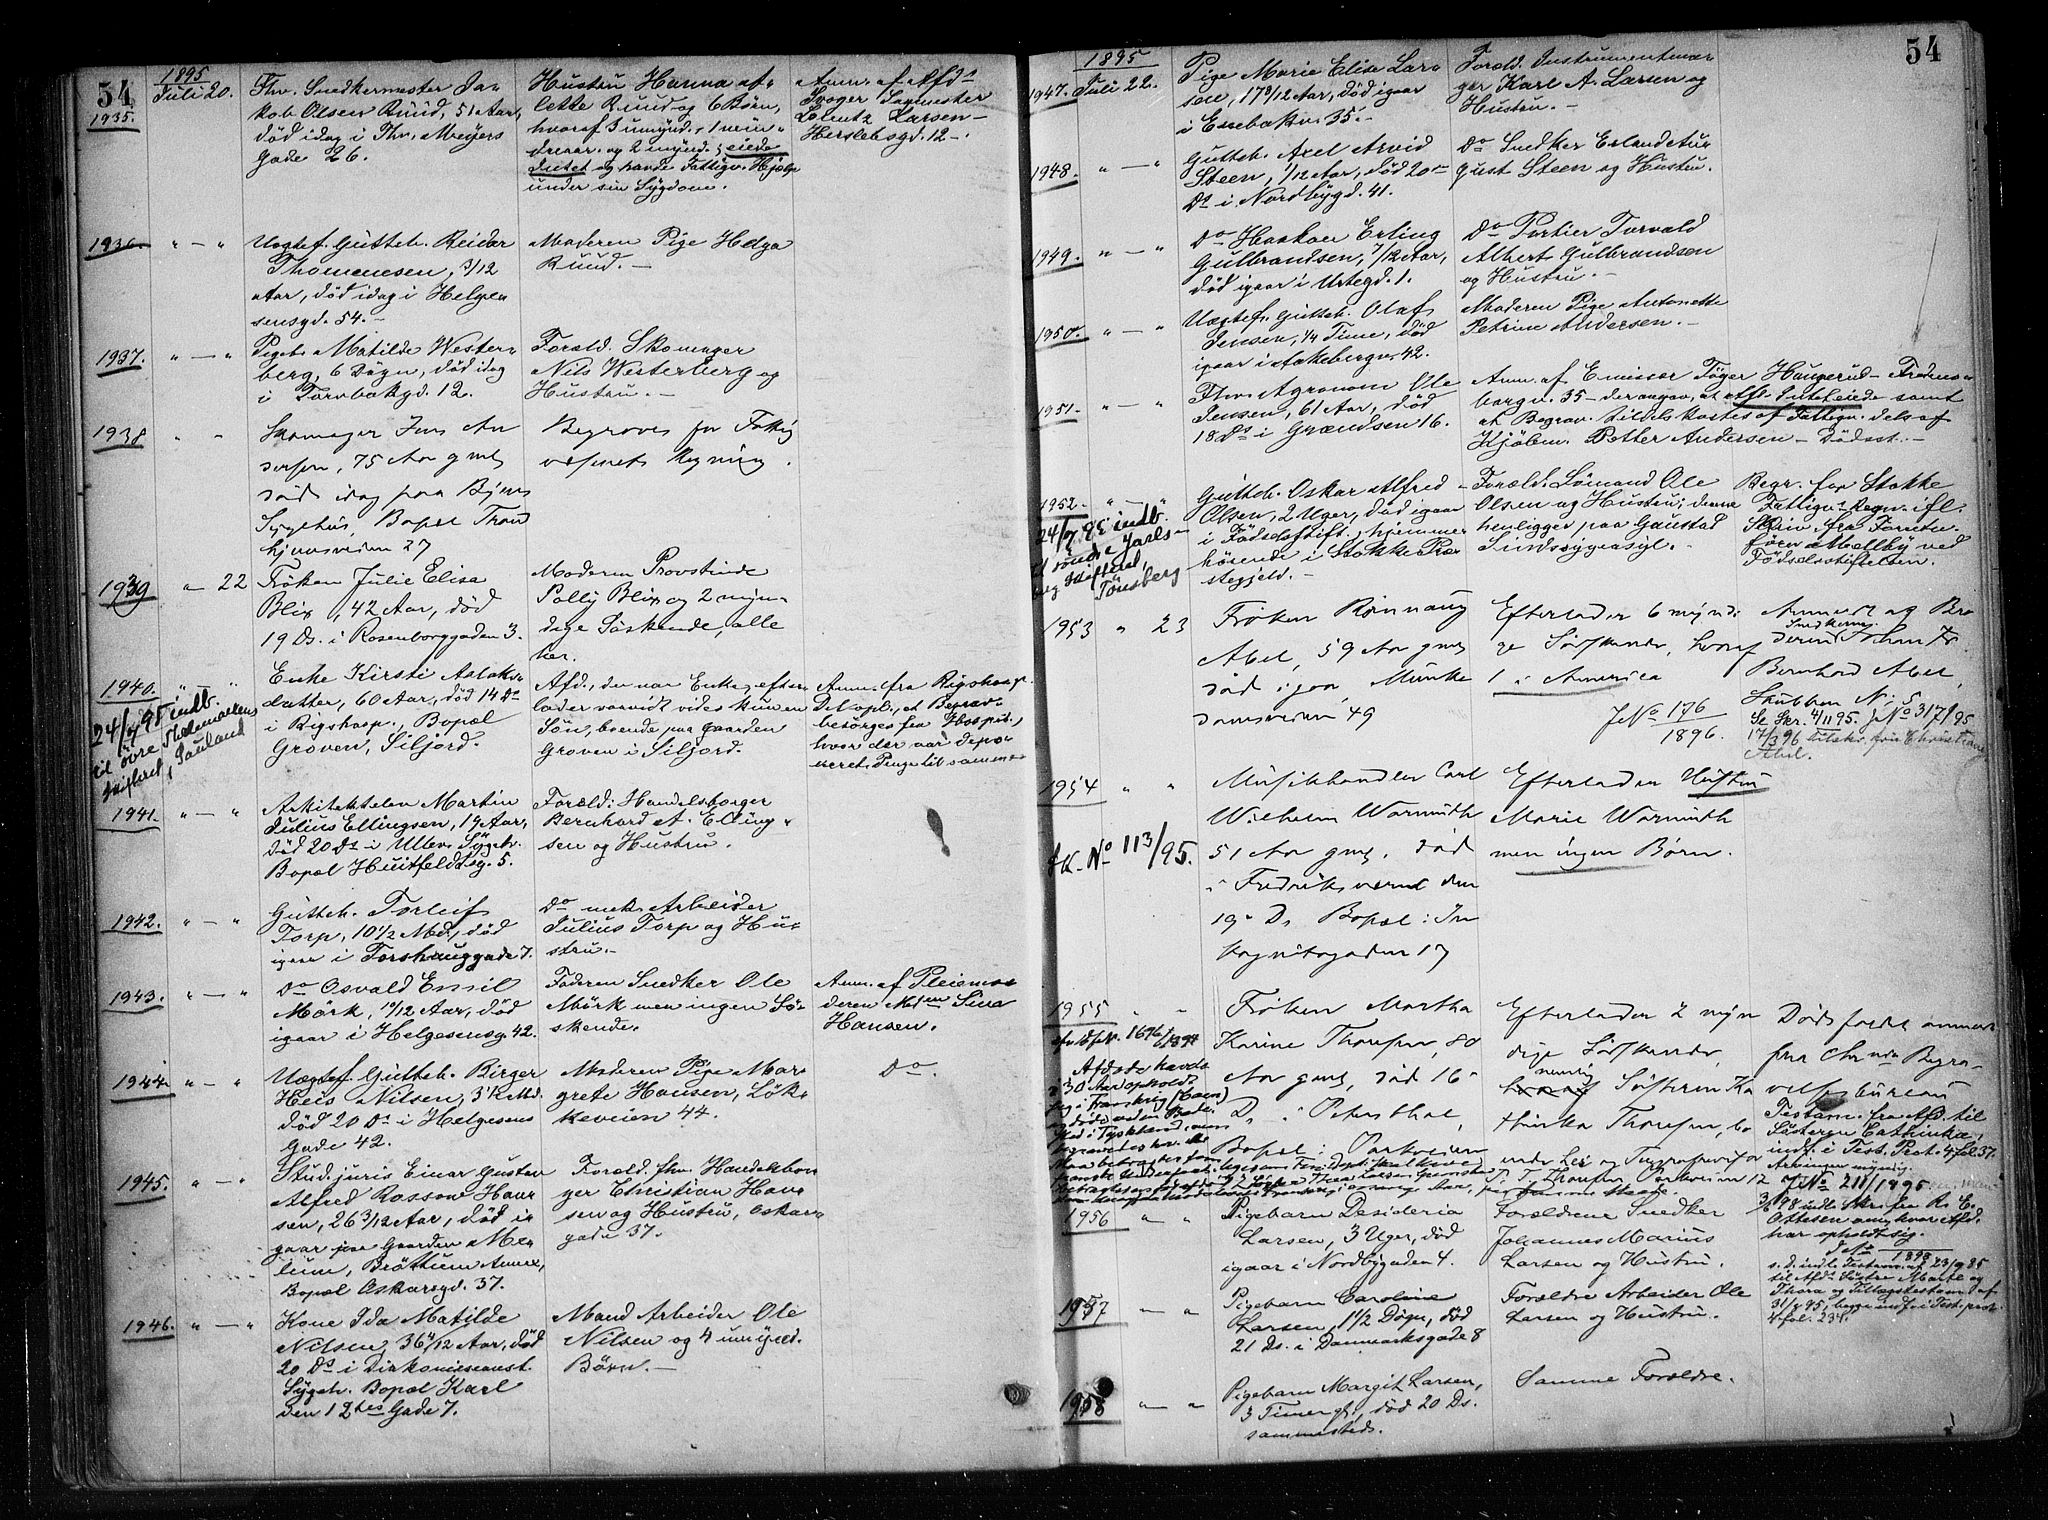 54
1895
1935.
Juli 20.
Fhv. Snedkermester Ja-
kob Olsen Ruud, 51 Aar,
død idag i Thv. Meyers
Gade 26.
Hustru Hanna
lette Ruud og 6 Børn,
hvoraf 3 umynd., 1 min-
dreaar. og 2 mynd.; eiede
Intet og havde Fattigv. Hjælp
under sin Sygdom.
Anm. af Afdes
Svoger
Lorentz Larsen -
Herslebsgd. 12 -.
1936.
" — "
Uægtef. Gutteb. Reidar
Thomesen, 3/12
Aar, død idag i Helge-
sensgd. 54. -
Moderen Pige Helga
Ruud. —
1937.
" — "
Pigeb. Matilde Wester-
berg, 6 Døgn, død idag
i Torvbakgd. 12.
Foræld. Skomager
Nils Westerberg og
Hustru. —
1938
" "
Skomager Jens An
dersen, 75 Aar gml
død idag paa Byens
Sygehus, Bopæl Trond
hjemsveien 27
Begraves for Fattig
væsenets Regning.
1939
" — 22
Frøken Julie Elisa
Blix, 42 Aar, død
19 Ds. i Rosenborggaden 3.
Moderen Provstinde
Polly Blix og 2 myn-
dige Søskende, alle
her.
1940.
" "
24/7 95 indb.
til övre Thelemarkens
Skifteret, Sauland
Enke Kirsti Aslaks-
datter, 60 Aar, død 14 Ds
i Rigshosp., Bopæl
Groven, Siljord.
Afd., der var Enke, efter-
lader vorvidt vides kun en
Søn, boende paa Gaarden
Groven i Siljord.
Anm. fra Rigshosp.
Begrav.
besörges fra Hospit.,
hvor der var depo-
neret Penge til samme
1941.
" — "
Arkitektelev Martin
Julius Ellingsen, 19 Aar,
død 20 Ds i Ullev. Sygeh.
Bopæl Huitfeldtsg. 5.
Foræld: Handelsborger
Bernhard A. Elling-
sen og Hustru.
1942.
" — "
Gutteb. Torleif
Torp, 10 1/2 Md., død
igaar i Forshauggade 7.
Do mek. Arbeider
Julius Torp og Hu-
stru. -
1943.
" — "
Do Osvald Emil
Mörk, 10/12 Aar, død
igaar i Helgesensg. 42.
Faderen Snedker Ole
Mörk men ingen Sö-
skende.
Anm. af Pleiemo-
deren Mdm Sina
Hansen.
1944.
" — "
Uægtef. Gutteb. Birger
Heis Nilsen, 3 1/2 Md.
død 20 Ds i Helgesens
Gade 42.
Moderen Pige Mar-
grete Hansen, Lök-
keveien 44.
Do.
1945.
" — "
Stud. juris Einar Gustav
Alfred Rossow Han-
sen, 26 3/12 Aar, død i-
gaar paa Gaarden Me-
lum, Brøttum Annex,
Bopæl Oskarsgd. 37.
Foræld. fhv. Handelsbor-
ger Christian Han-
sen og Hustru, Oskars-
gade 37.
1946.
" — "
Kone Ida Matilde
Nilsen, 36 4/12 Aar, död
20 Ds i Diakonisseanst.
Sygeh. Bopæl Karl
den 12tes Gade 7.
Mand Arbeider Ole
Nilsen og 4 umynd.
Börn. —
54
1895
1947.
Juli 22.
Pige Marie Elise Lar-
sen, 17 8/12 Aar, død igaar
i Enebakv. 35. -
Foræld. Instrumentma-
ger Karl A. Larsen og
Hustru. -
1948.
" — "
Gutteb. Axel Arvid
Steen, 1/12 Aar, død 20
Ds i Nordbygd. 41.
Do Snedker Erland Au-
gust Steen og Hustru.
1949.
" — "
Do Haakon Erling
Gulbrandsen, 7/12 Aar,
død igaar i Urtegd. 1.
Do Portier Torvald
Albert Gulbrandsen
og Hustru. -
1950.
" — "
Uægtef. Gutteb. Olaf
Jensen, 1/4 Time, död
igaar i Akebergv. 42.
Moderen Pige Antonette
Petrine Andersen. -
1951.
" — "
Fhv. Agronom Ole
Jensen, 61 Aar, død
18 Ds i Grændsen 16.
Anm. af Emissær Töger Haugerud - Fredens-
borgv. 35 - der angav, at Afd. Intet eiede samt
at Begrav. tildels kostes af Fattigv. dels af
Kjøbm. Petter Andersen - Dödsst. -
1952.
" — "
24/7 95 indb.
til søndre Jarls-
berg Skifteret,
Tönsberg
Gutteb. Oskar Alfred
Olsen, 2 Uger, död igaar
i Födselsstift., hjemme-
hörende i Stokke Præ-
stegjeld. -
Foræld. Sömand Ole
Olsen og Hustru; denne
henligger paa Gaustad
Sindssygeasyl. -
Begr. for Stokke
Fattigv. Regn. ifl.
Skriv. fra Forstan-
deren Mellby ved
Födselsstiftelsen.
1953
" 23
Frøken Rønnaug
Abel, 59 Aar gml
død igaar, Munke
damsveien 49
Efterlader 6 myndi-
ge Søskende, hvoraf
1 i Amerika
J No 176
1896.
Anmeldt af Bro
deren Snedkerm.
Bernhard Abel,
Stubben N: 5
Se Skr. 4/11 95. J No 317/95
17/3 96 Tilskr. fru Christiane
Abel.
1954
" "
JK. No 113/95.
Musikhandler Carl
Wilhelm Warmuth
51 Aar gml. død
i Fredriksværn den
19. Ds. Bopæl: In
kognitogaden 17
Efterlader Hustru
Marie Warmuth
men ingen Børn.
1955
" "
Afdøde havde
i 30 Aar opholdt
sig i Frankrig (Caen)
Frøken Martha
Karine Thoresen, 80
Aar gml, død 16
Ds. i Petersthal,
Bopæl: Parkveien
Efterlader 2 myn
dige Søskende,
nemlig Søsteren Ka
thinka Thoresen, bo
Dødsfaldet anmeldt
fra Chr.nia Begra-
velsesbureau
Testam. fra Afd. til
Søsteren Cathinka,
indf. i Test. Prot. 4 fol 37.
Arvinger myndig.
J No 211/1895.
3/6 98 indb. Skr. fra R. E.
Ottesen om, hvor Afd.
har opholdt sig.
1898
s. D. indb. Testam. af 23/9 85
til Afdes Søstre Marte og
Thora og Tillægstestam. af
31/7 95, begge indf. i Test. prot
4 fol. 234.
1956
" "
Pigebarn Desideria
Larsen, 3 Uger, død
igaar i Nordbygaden 4.
Forældrene Snedker
Johannes Marius
Larsen og Hustru.
1957
— "
Pigebarn Caroline
Larsen, 1 1/2 Døgn, død
21 Ds. i Danmarksgade 8
Forældre Arbeider Ole
Larsen og Hustru.
1958
— "
Pigebarn Margit Larsen,
3 Timer gl, død 20 Ds.
sammesteds.
Samme Forældre.